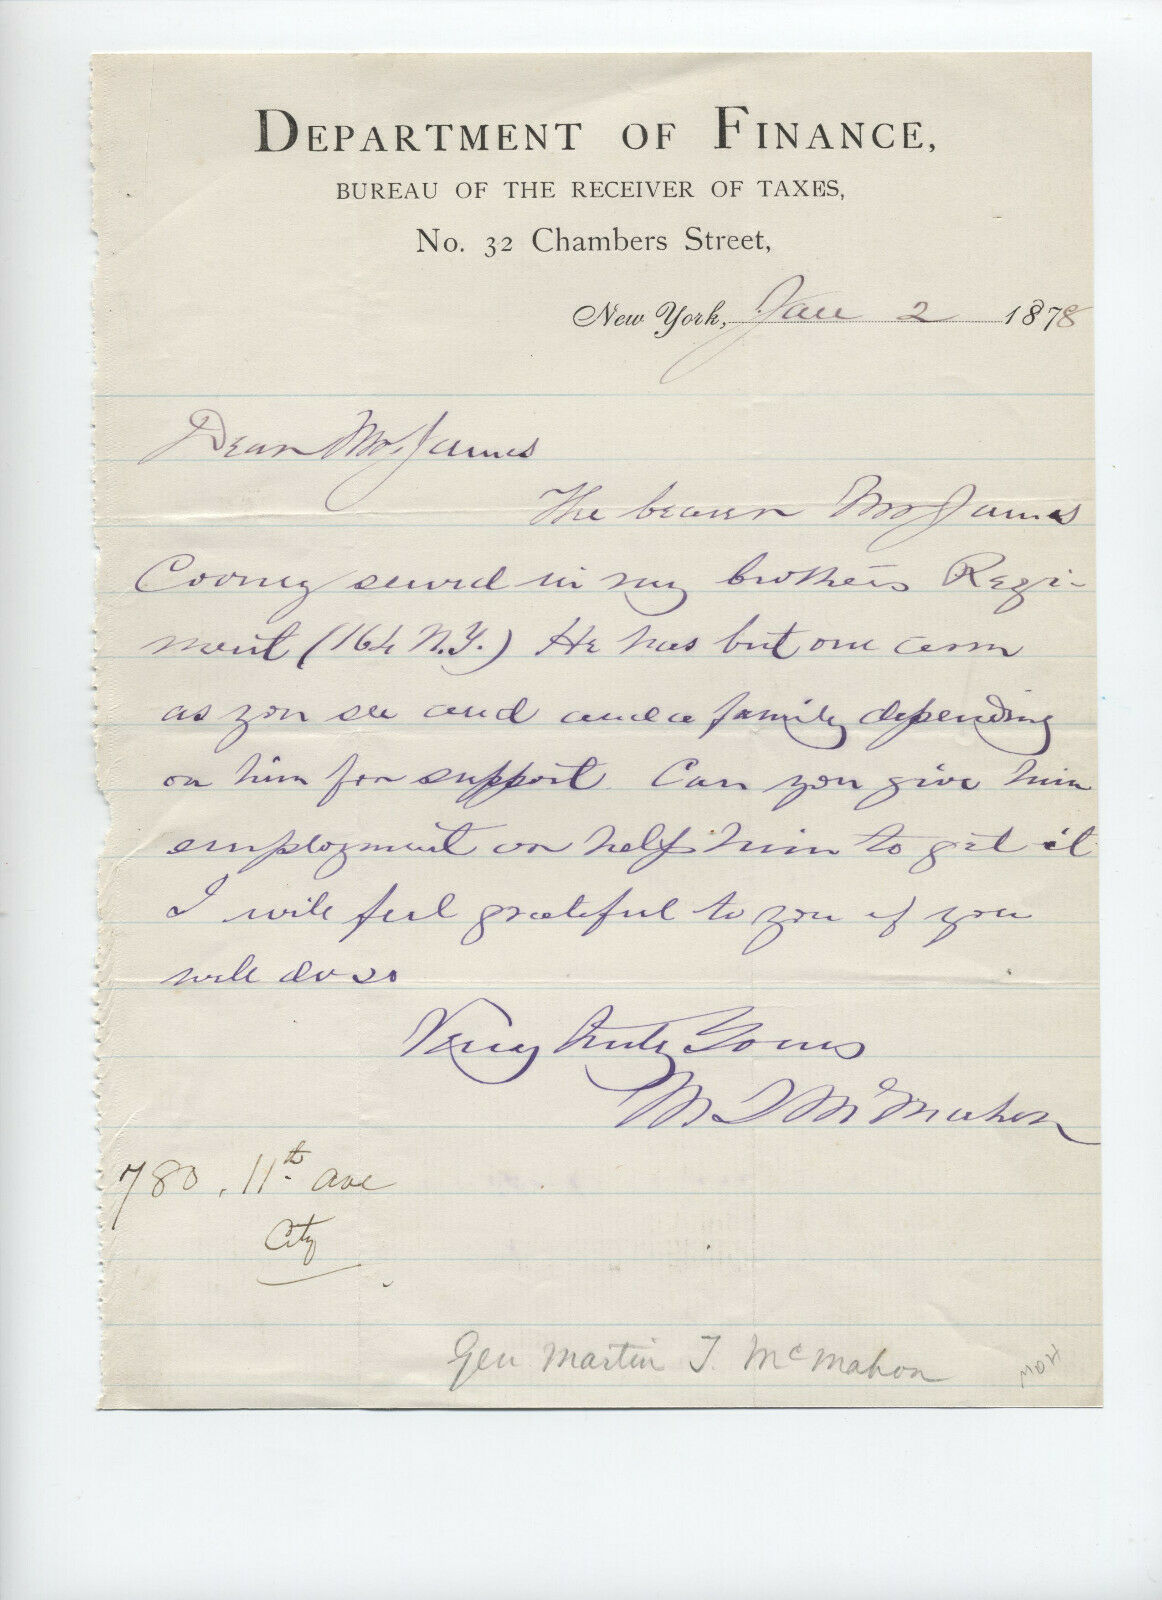 DEPARTMENT OF FINANCE,
BUREAU OF THE RECEIVER OF TAXES,
No. 32 Chambers Street,
New York, Jan 2 1878
Dear Mr James
The bearer Mr James
Cooney served in my brothers Regi-
ment (164 N.Y.) He has but one arm
as you see and a family depending
on him for support. Can you give him
employment or help him to get it
I will feel grateful to you if you
will do so
Very truly Yours
M T McMahon
780, 11th ave
City
Gen Martin T. McMahon
MOH